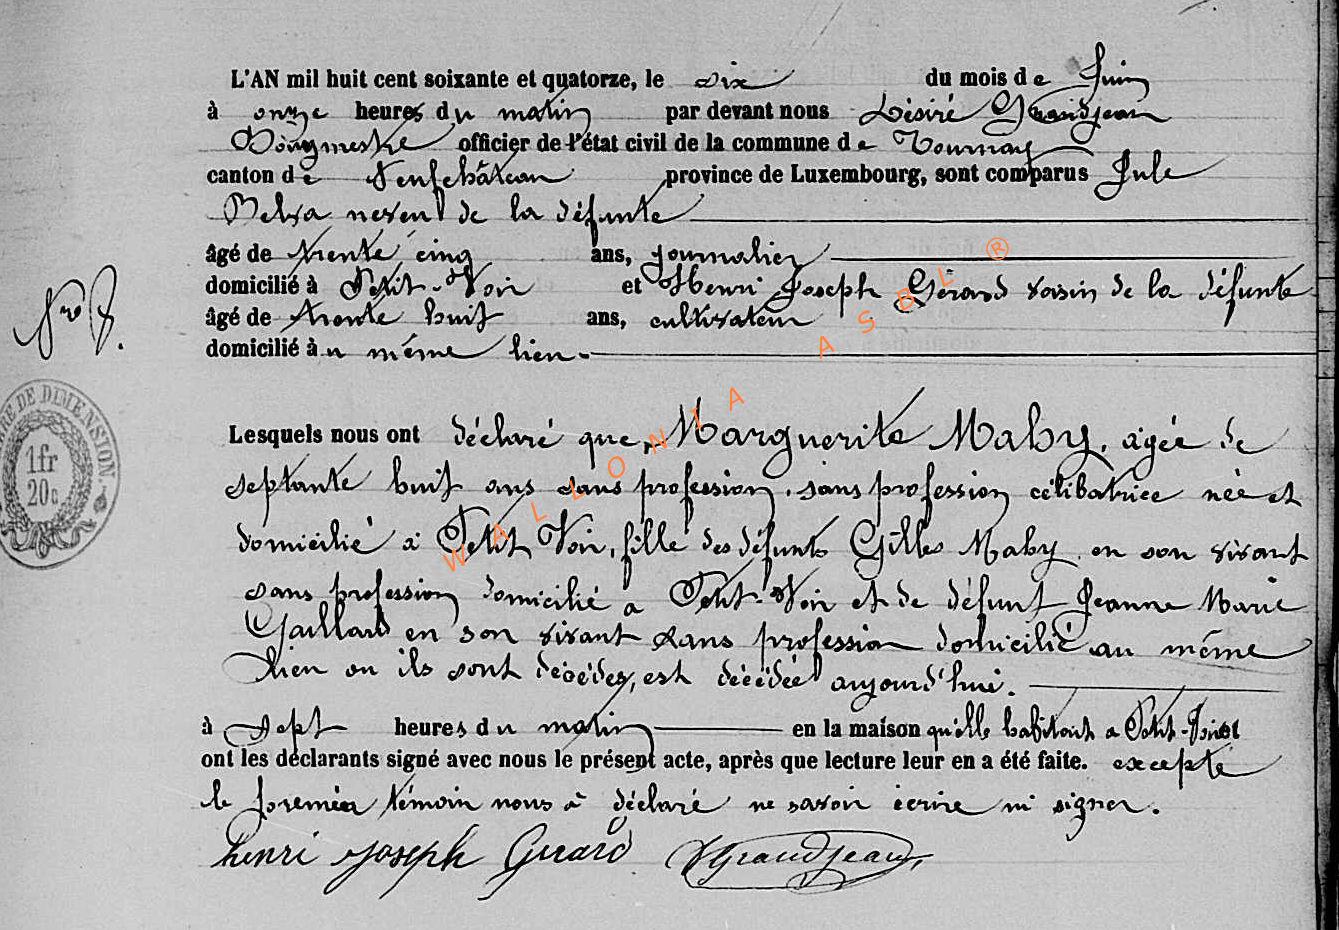 L'AN mil huit cent soixante et quatorze, le six du mois de Juin
à onze heures du matin par devant nous Désiré Grandjean
Bourgmestre officier de l'état civil de la commune de Tournay
canton de Neufchâteau province de Luxembourg, sont comparus Jule
neveu de la défunte
âgé de trente cinq ans, journalier
domicilié à Petit-Voir et Henri Joseph Gérard voisin de la défunte
âgé de trente huit ans, cultivateur
domicilié au même lieu.
Nro 7.
TIMBRE DE DIMENSION.
1fr
20c
Lesquels nous ont déclaré que Marguerite Maby, agée de
septante huit ans sans profession, sans profession célibatrice née et
domicilié à Petit Voir, fille des défunts Gilles Maby en son vivant
sans profession domicilié a Petit-Voir et de défunt Jeanne Marie
Gaillard en son vivant sans profession domicilié au même
lien ou ils sont décédés, est décédée aujourd'hui.
à sept heures du matin en la maison qu'elle habitait a Petit-Voir et
ont les déclarants signé avec nous le présent acte, après que lecture leur en a été faite. excepté
le premier témoin nous à déclaré ne savoir écrire ni signer.
henri joseph Gerard DGrandjean
WALLONIA ASBL ®